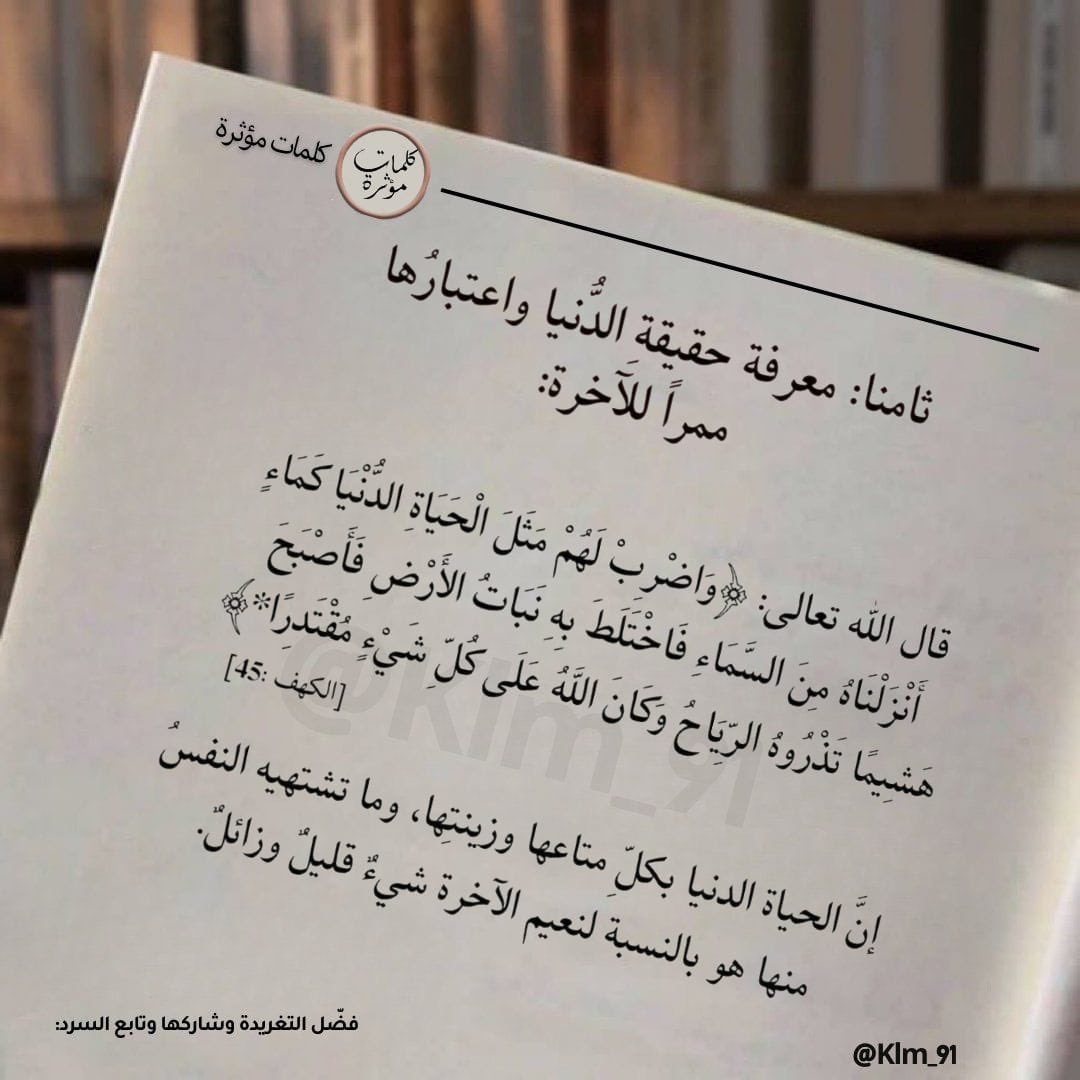 كلمات مؤثرة
كلمات
مؤثرة
ثامنا: معرفة حقيقةِ الدُّنيا واعتبارُها
ممراً للَآخرة:
قال الله تعالى: ﴿وَاضْرِبْ لَهُمْ مَثَلَ الْحَيَاةِ الدُّنْيَا كَمَاءٍ
أَنْزَلْنَاهُ مِنَ السَّمَاءِ فَاخْتَلَطَ بِهِ نَبَاتُ الأَرْضِ فَأَصْبَحَ
هَشِيمًا تَذْرُوهُ الرِّيَاحُ وَكَانَ اللَّهُ عَلَى كُلِّ شَيْءٍ مُقْتَدِرًا*﴾
[الكهف :45]
إنَّ الحياة الدنيا بكلِّ متاعها وزينتِها، وما تشتهيه النفسُ
منها هو بالنسبة لنعيم الآخرة شيءٌ قليلٌ وزائلٌ.
@Klm_91
فضّل التغريدة وشاركها وتابع السرد:
@Klm_91